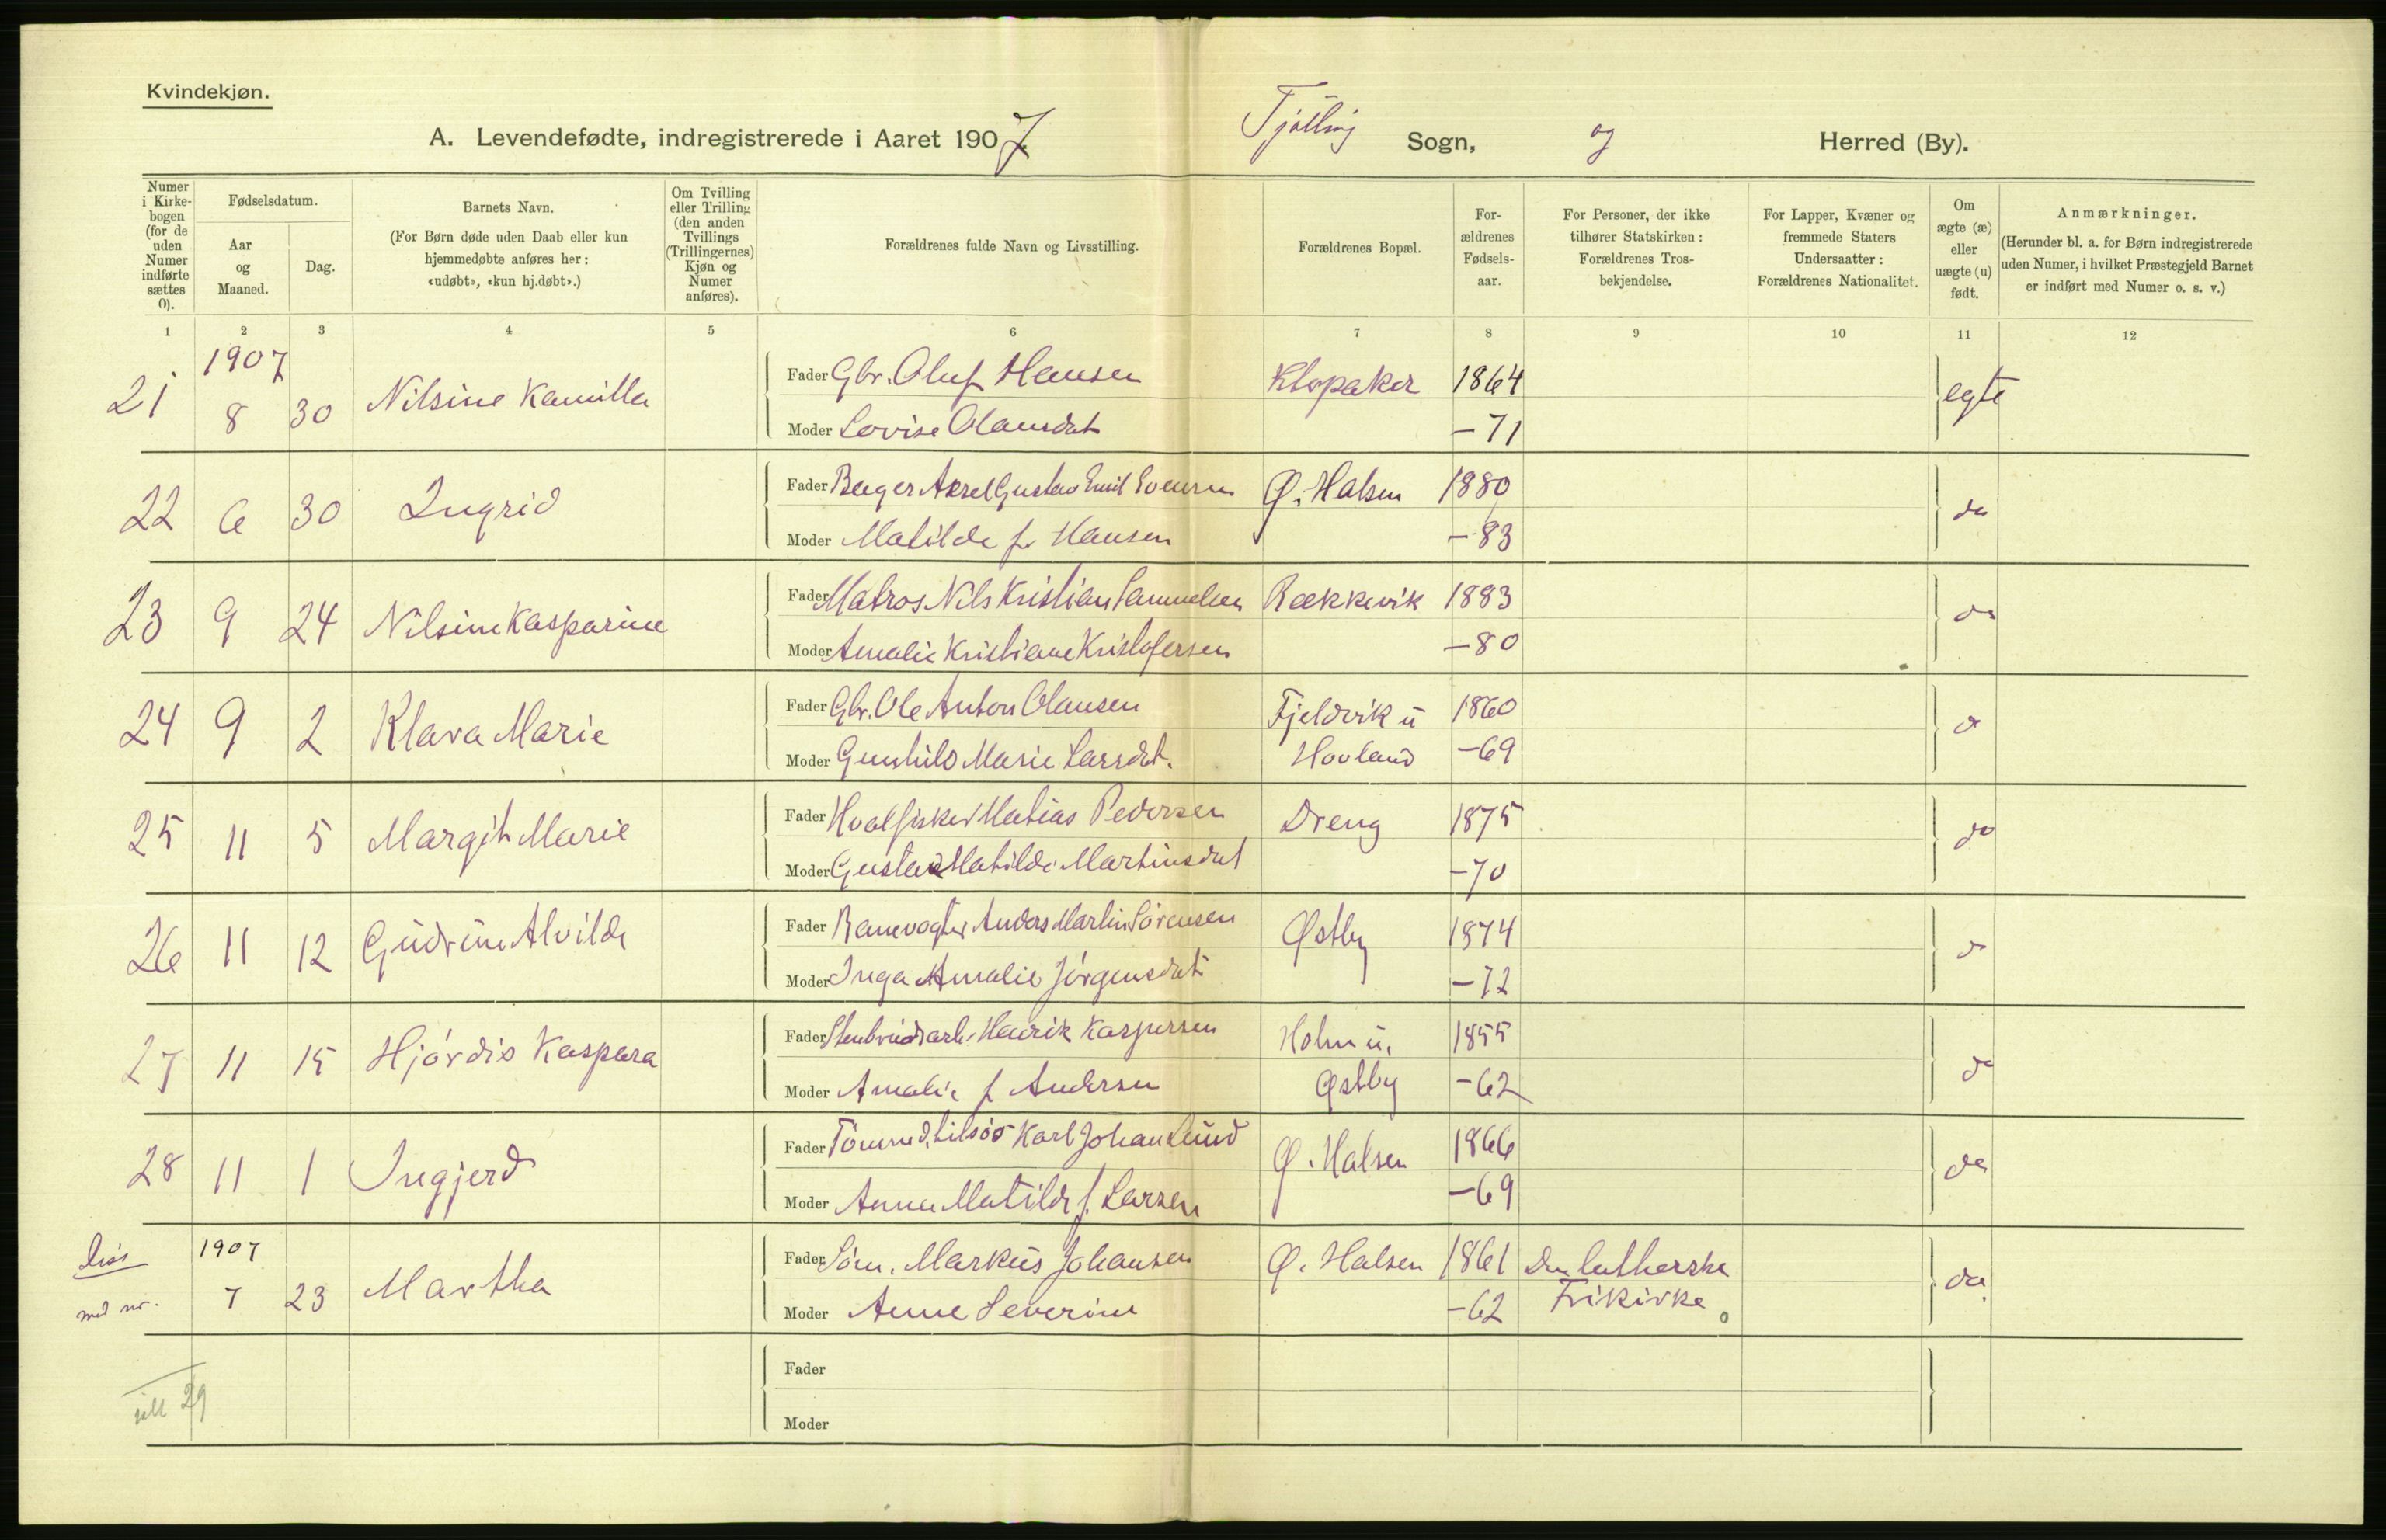 Kvindekjøn.
A. Levendefødte, indregistrerede i Aaret 1907. Tjølling Sogn, og Herred (By).
Numer i Kirkebogen (for de uden Numer indførte sættes 0).
Fødselsdatum.
Aar og Maaned.
Dag.
Barnets Navn.
(For Børn døde uden Daab eller kun hjemmedøbte anføres her: «udøbt», «kun hj.døbt».)
Om Tvilling eller Trilling (den anden Tvillings (Trillingernes) Kjøn og Numer anføres).
Forældrenes fulde Navn og Livsstilling.
Forældrenes Bopæl.
Forældrenes Fødselsaar.
For Personer, der ikke tilhører Statskirken: Forældrenes Trosbekjendelse.
For Lapper, Kvæner og fremmede Staters Undersaatter: Forældrenes Nationalitet.
Om ægte (æ) eller uægte (u) født.
Anmærkninger.
(Herunder bl. a. for Børn indregistrerede uden Numer, i hvilket Præstegjeld Barnet er indført med Numer o. s. v.)
1 2 3 4 5 6 7 8 9 10 11 12
1907
21 8 30 Nilsine Kamilla Fader Gbr. Oluf Hansen Klopaker 1864 egte
Moder Lovise Olausdat -71
22 6 30 Ingrid Fader Berger Axel Gustav Emil Svensen Ø. Halsen 1880 do
Moder Matilde f. Hansen -83
23 9 24 Nilsine Kasparine Fader Matros Nils Kristian Samuelsen Rækkevik 1883 do
Moder Amalie Kristiane Kristofersen -80
24 9 2 Klara Marie Fader Gbr. Ole Anton Olausen Fjeldvik u 1860 do
Moder Gunhild Marie Larsdat. Hovland -69
25 11 5 Margit Marie Fader Hvalfisker Matias Pedersen Dreng 1875 do
Moder Gustava Matilde Martinsdat -70
26 11 12 Gudrun Alvilde Fader Banevogter Anders Martin Sørensen Østby 1874 do
Moder Inga Amalie Jørgensdat -72
27 11 15 Hjørdis Kaspara Fader Stenbrudsarb. Henrik Kaspersen Holm u. 1855 do
Moder Amalie f Andersen Østby -62
28 11 1 Ingjerd Fader Tømmerm. Karl Johan Lund Ø. Halsen 1866 do
Moder Anna Matilde f. Larsen -69
Diss 1907
med nr. 7 23 Martha Fader Søm. Markus Johansen Ø. Halsen 1861 Den lutherske do.
Moder Anne Severine -62 Frikirke
Fader
29
Moder